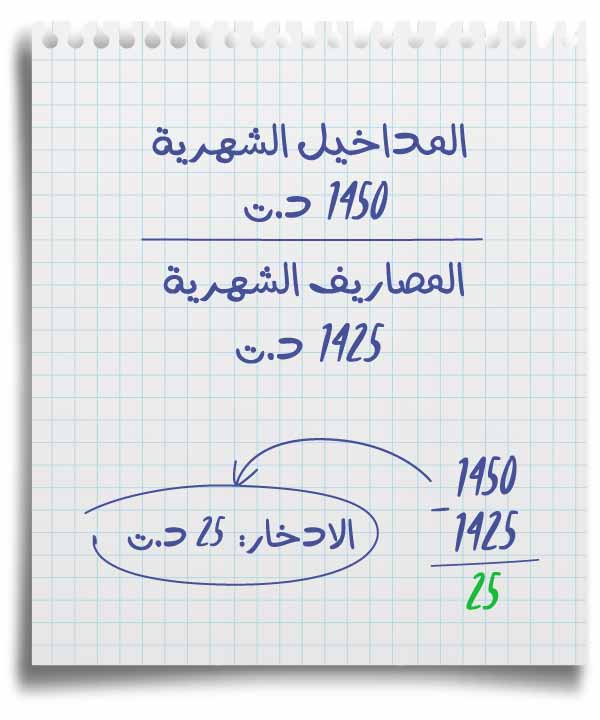 المداخيل الشهرية
1450 د.ت
المصاريف الشهرية
1425 د.ت
1450
- 1425
25
الادخار: 25 د.ت